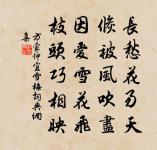 長愁花易夭
倐被風吹盡
因愛雪花飛
枝頭巧相映
方蒙仲宜雪梅詞典網
集